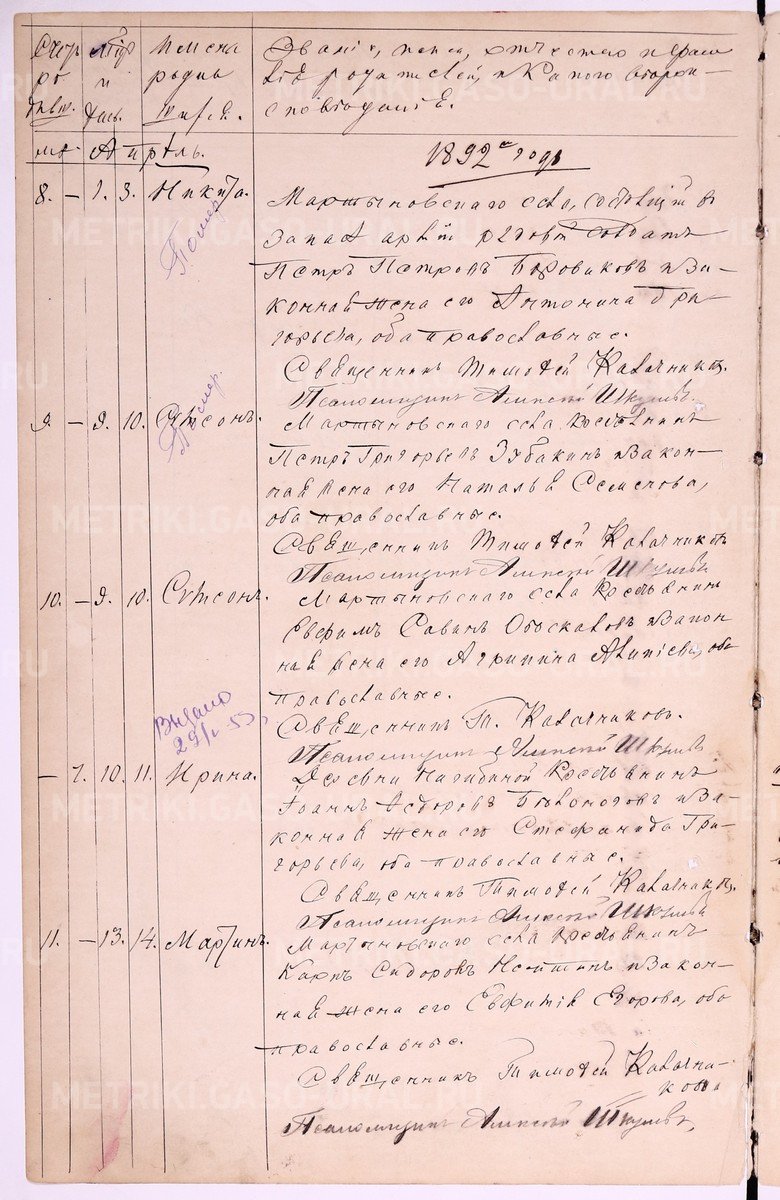 Счет родивш. Мѣс. и день. Имена родив шихся. Званіе, имя, отчество и фами
лія родителей, и какого вѣроис-
повѣданія.
м. Апрѣль. 1892 года
8. – 1. 3. Никита. Мартыновскаго села, состоящій въ
запасѣ арміи рядовой солдатъ
Петръ Петровъ Боровиковъ и за-
конная жена его Антонина Гри-
горьева, оба православные.
Помер.
Священникъ Тимофей Калачниковъ.
Псаломщикъ Алексей
9. – 9. 10. Сѵмеонъ. Мартыновскаго села крестьянинъ
Помер.
Петръ Григорьевъ Зубакинъ и закон-
ная жена его Наталья Семенова,
оба православные.
Священникъ Тимофей Калачниковъ
Псаломщикъ Алексей
10. – 9. 10. Сѵмеонъ. Мартыновскаго села крестьянинъ
Евфимъ Савинъ Обоскаловъ и закон
ная жена его Агрипина оба
православные.
Выдано
Священникъ Т. Калачниковъ.
Псаломщикъ Алексей
– 7. 10. 11. Ирина. Деревни Нагибиной крестьянинъ
Іоаннъ Ѳедоровъ Бѣлоноговъ и за-
конная жена его Стефанида Гри-
горьева, оба православные.
Священникъ Тимофей Калачниковъ.
Псаломщикъ Алексей
11. – 13. 14. Мартинъ. Мартыновскаго села крестьянинъ
Карпъ Сидоровъ и закон-
ная жена его Евфимія Егорова, оба
православные.
Священникъ Тимофей Калачни-
ковъ
Псаломщикъ Алексей
METRIKI.GASO-URAL.RU